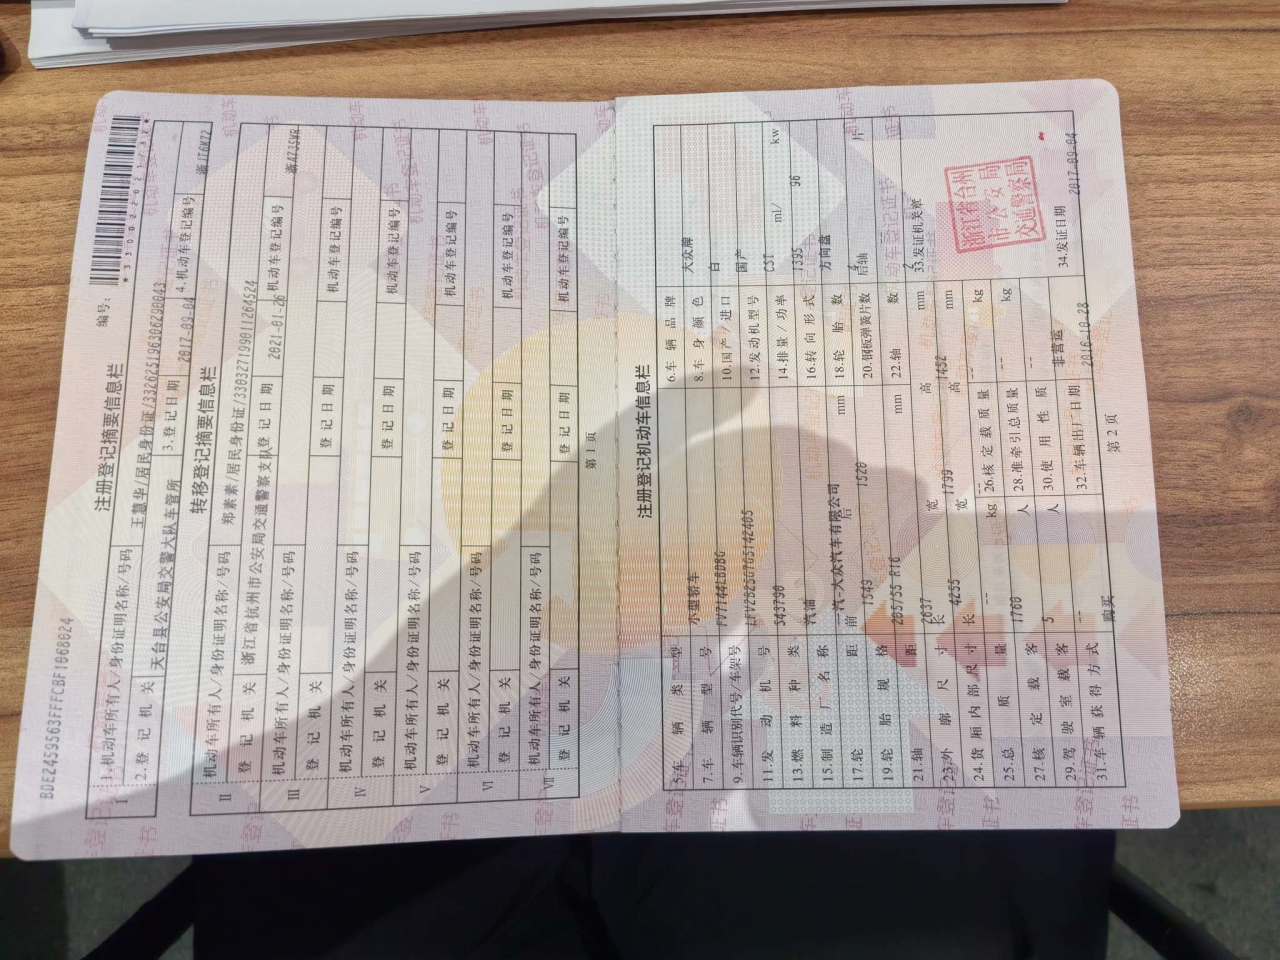 BDE2459563FFFCBF1068024
注册登记摘要信息栏
编号:
Ⅰ 1.机动车所有人/身份证明名称/号码 王慧华/居民身份证/332625196306290043
2.登记机关 天台县公安局交警大队车管所 3.登记日期 2017-09-04 4.机动车登记编号 浙JT6W72
转移登记摘要信息栏
Ⅱ 机动车所有人/身份证明名称/号码 郑素素/居民身份证/330327199011264524
登记机关 浙江省杭州市公安局交通警察支队 登记日期 2021-01-26 机动车登记编号
Ⅲ 机动车所有人/身份证明名称/号码
登记机关 登记日期 机动车登记编号
Ⅳ 机动车所有人/身份证明名称/号码
登记机关 登记日期 机动车登记编号
Ⅴ 机动车所有人/身份证明名称/号码
登记机关 登记日期 机动车登记编号
Ⅵ 机动车所有人/身份证明名称/号码
登记机关 登记日期 机动车登记编号
Ⅶ 机动车所有人/身份证明名称/号码
登记机关 登记日期 机动车登记编号
第 1 页
注册登记机动车信息栏
5.车辆类型 小型轿车 6.车辆品牌 大众牌
7.车辆型号 FV7144LBDBG 8.车身颜色 白
9.车辆识别代号/车架号 LFV2B25G7G5142405 10.国产/进口 国产
11.发动机号 S43790 12.发动机型号 CST
13.燃料种类 汽油 14.排量/功率 1395 ml/ 96 kw
15.制造厂名称 一汽-大众汽车有限公司 16.转向形式 方向盘
17.轮距 前 1549 后 1520 mm 18.轮胎数 4
19.轮胎规格 205/55 R16 20.钢板弹簧片数 后轴 -- 片
21.轴距 2637 mm 22.轴数 2
23.外廓尺寸 长 4255 宽 1799 高 1452 mm 33.发证机关章
24.货厢内部尺寸 长 -- 宽 -- 高 -- mm
25.总质量 1760 kg 26.核定载质量 -- kg
27.核定载客 5 人 28.准牵引总质量 -- kg
29.驾驶室载客 -- 人 30.使用性质 非营运
31.车辆获得方式 购买 32.车辆出厂日期 2016-10-28 34.发证日期 2017-09-04
浙江省台州
市公安局
交通警察局
第 2 页